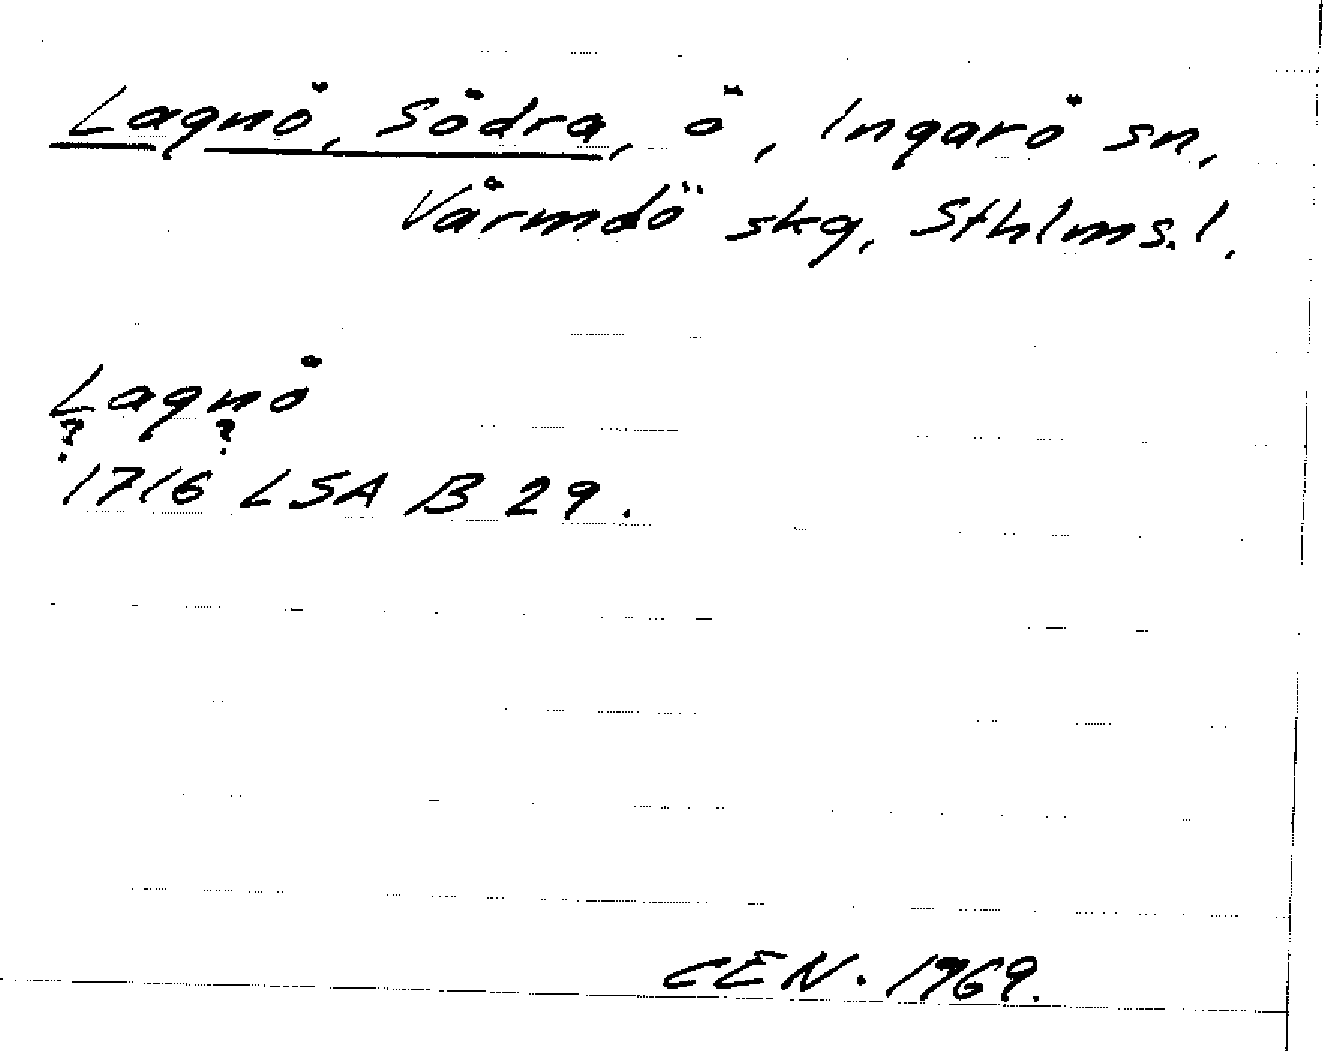 Lagnö, Södra, ö, Ingarö sn,
Värmdö skg, Sthlms.l.
Lagnö
? ?
1716 LSA B 29.
CEN. 1969.